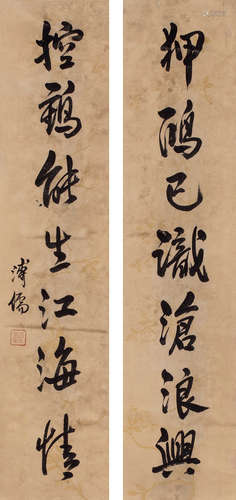 狎鷗已識滄浪興
控鶴能生江海情
溥儒